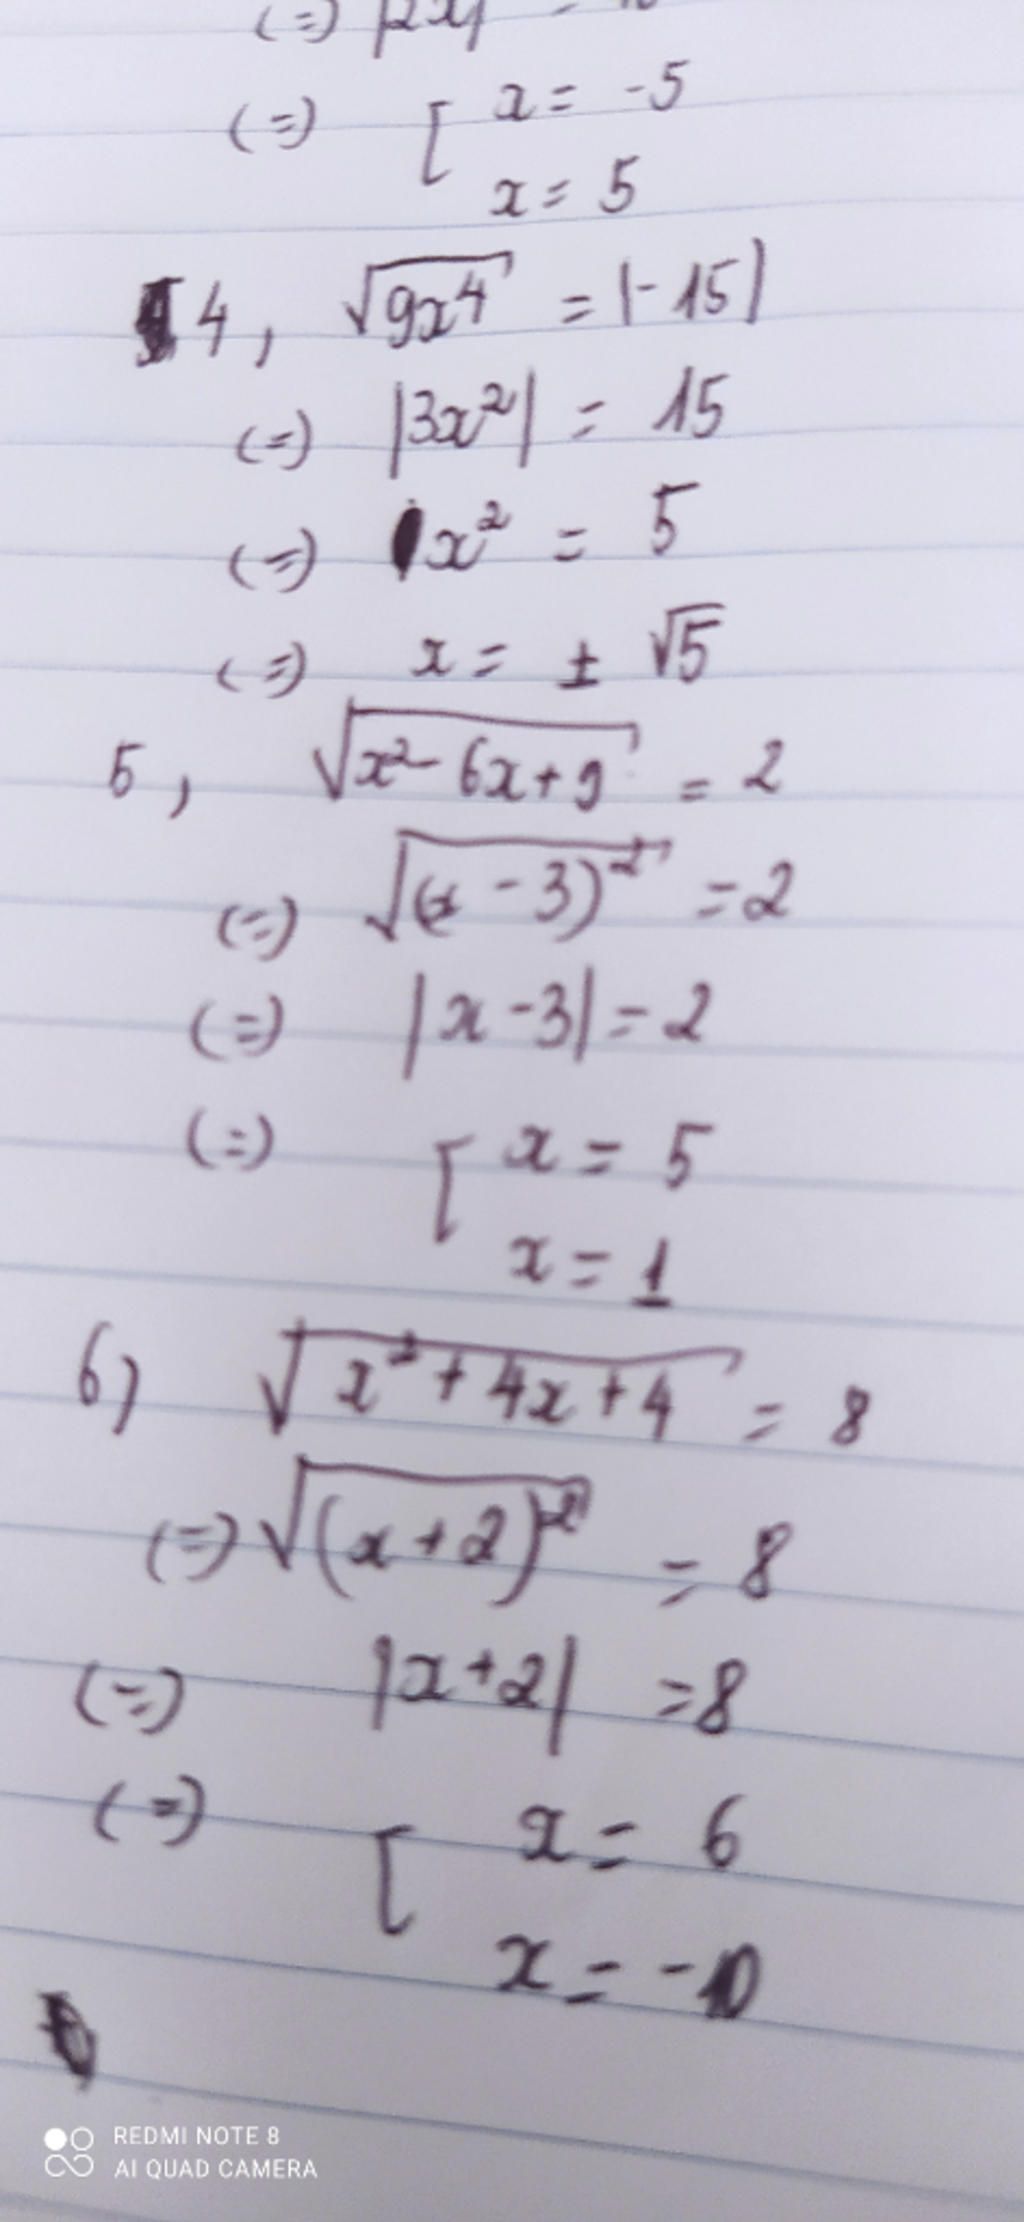 (=) |2x| =
(=) [ x = -5
x = 5
4, √9x⁴ = |-15|
(=) |3x²| = 15
(=) x² = 5
(=) x = ± √5
5, √x² - 6x + 9 = 2
(=) √(x - 3)² = 2
(=) |x - 3| = 2
(=) [ x = 5
x = 1
6) √x² + 4x + 4 = 8
(=) √(x + 2)² = 8
(=) |x + 2| = 8
(=) [ x = 6
x = -10
REDMI NOTE 8
AI QUAD CAMERA